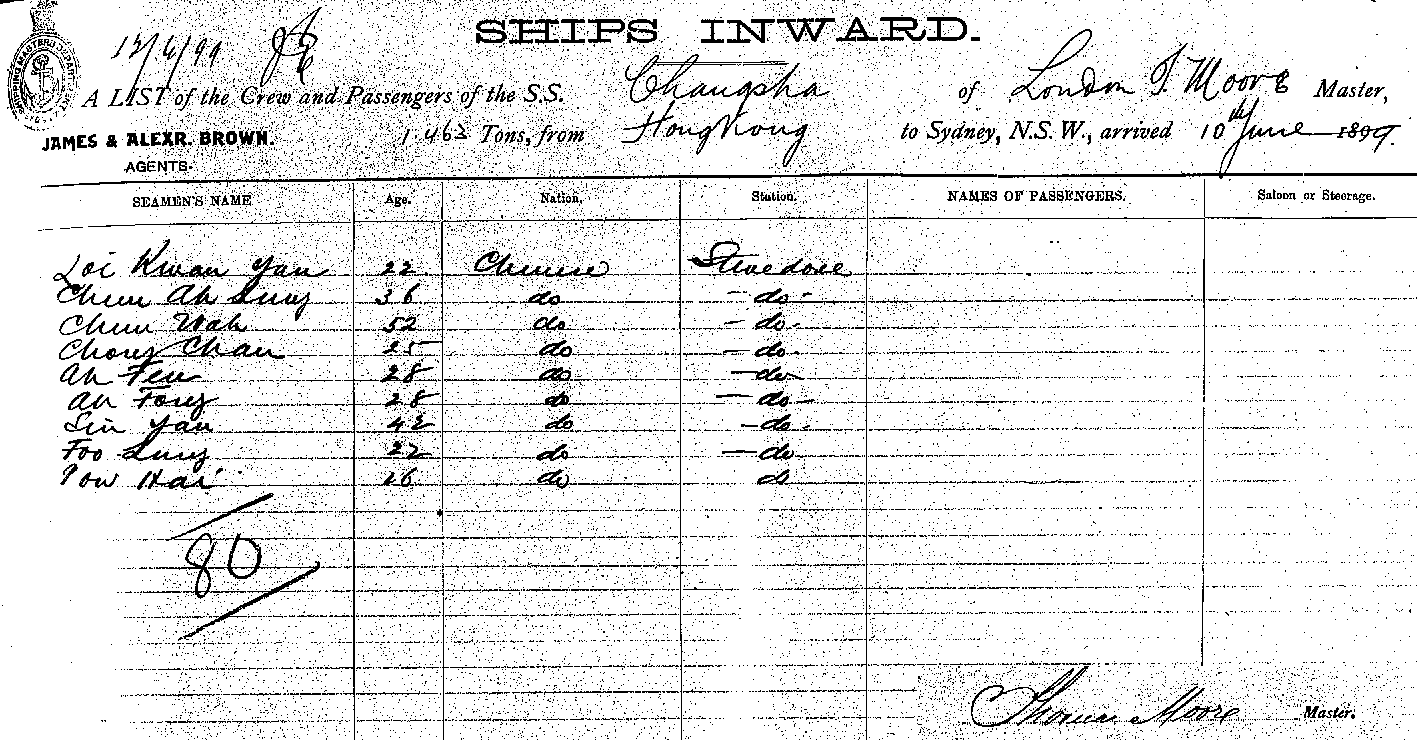 SHIPS INWARD.
12/6/99
A LIST of the Crew and Passengers of the S.S. Changsha of London T. Moore Master,
JAMES & ALEXR. BROWN. 1.463 Tons, from Hong Kong to Sydney, N.S.W., arrived 10th June 1899.
AGENTS.
SEAMEN'S NAME Age. Nation. Station. NAMES OF PASSENGERS. Saloon or Steerage.
Loi Kwan Yau 22 Chinese Stevedore
Chun Ah Lung 36 do - do -
Chun Wah 52 do - do.
Chong Chan 25 do - do.
Ah Feu 28 do - do -
Ah Fong 28 do - do -
Sin Yau 42 do - do.
Foo Lung 22 do - do.
Pow Hai 26 do do
80
Thomas Moore Master.